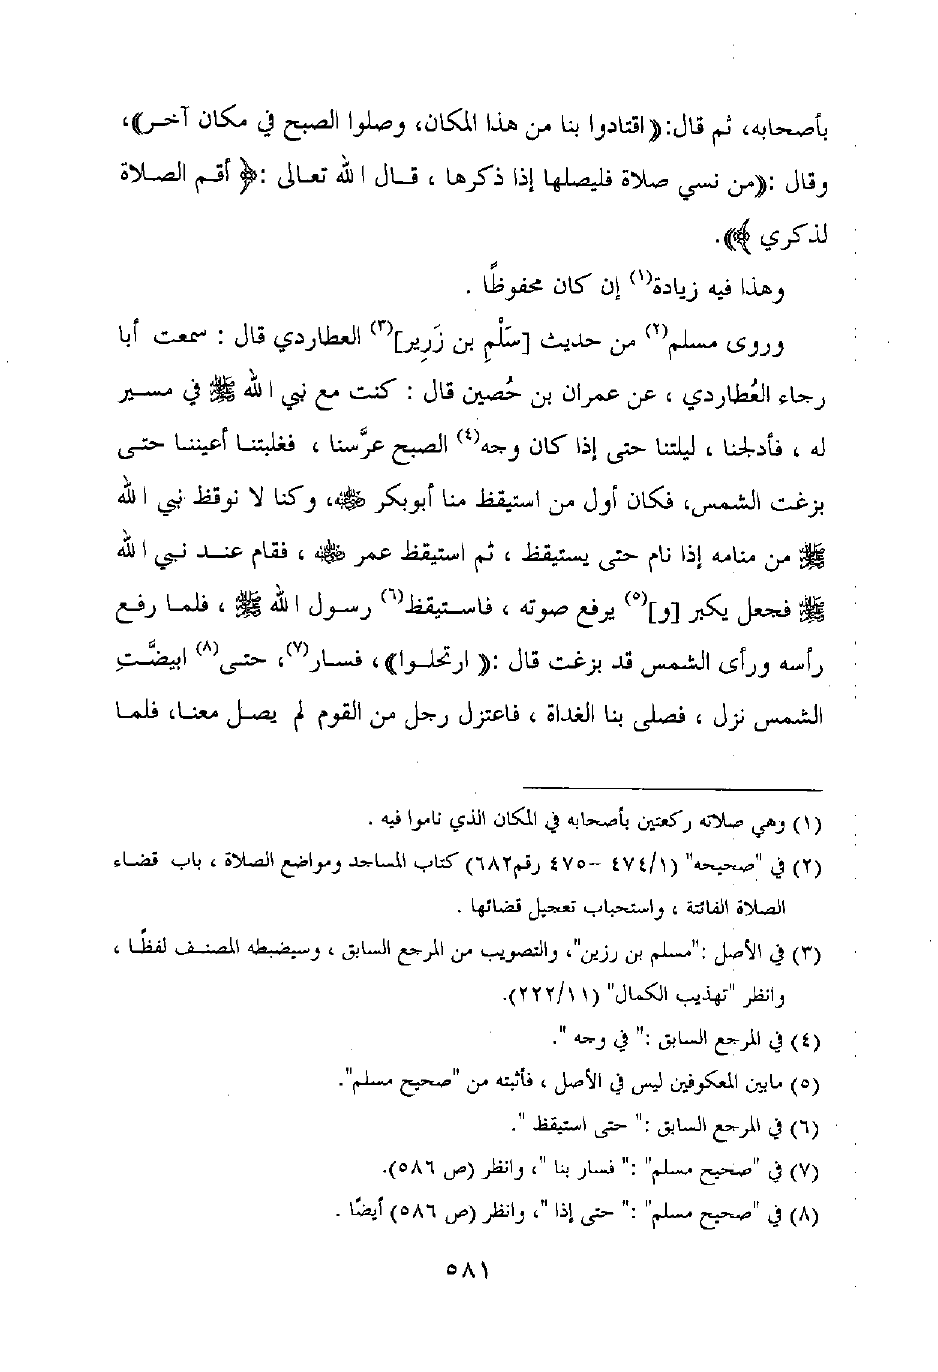 بأصحابه، ثم قال:(( اقتادوا بنا من هذا المكان، وصلوا الصبح في مكان آخر))،
وقال :((من نسي صلاة فليصلها إذا ذكرها ، قـال الله تعالى :﴿ أقـم الصـلاة
لذكري ﴾)).
وهذا فيه زيادة(١) إن كان محفوظًا .
وروى مسلم(٢) من حديث [سَلْمِ بن زَرِير](٣) العطاردي قال : سمعت أبا
رجاء العُطاردي ، عن عمران بن حُصين قال : كنت مع نبي الله ﷺ في مسـير
له ، فأدلجنا ، ليلتنا حتى إذا كان وجه(٤) الصبح عرَّسنا ، فغلبتنـا أعيننـا حتـى
بزغت الشمس، فكان أول من استيقظ منا أبوبكر ﷺ، وكنا لا نوقظ نبي الله
ﷺ من منامه إذا نام حتى يستيقظ ، ثم استيقظ عمر ﷺ ، فقام عنـد نبـي الله
ﷺ فجعل يكبر [و](٥) يرفع صوته ، فاسـتيقظ(٦) رسـول الله ﷺ ، فلمـا رفـع
رأسه ورأى الشمس قد بزغت قال :(( ارتحلـوا))، فسـار(٧)، حتـى(٨) ابيضَّتِ
الشمس نزل ، فصلى بنا الغداة ، فاعتزل رجل من القوم لم يصـل معنـا، فلمـا
(١) وهي صلاته ركعتين بأصحابه في المكان الذي ناموا فيه .
(٢) في "صحيحه" (٤٧٤/١ -٤٧٥ رقم٦٨٢) كتاب المساجد ومواضع الصلاة ، باب قضـاء
الصلاة الفائتة ، واستحباب تعجيل قضائها .
(٣) في الأصل :"مسلم بن رزين"، والتصويب من المرجع السابق ، وسيضبطه المصنـف لفظًـا ،
وانظر "تهذيب الكمال" (٢٢٢/١١).
(٤) في المرجع السابق :" في وجه ".
(٥) مابين المعكوفين ليس في الأصل ، فأثبته من "صحيح مسلم".
(٦) في المرجع السابق :" حتى استيقظ ".
(٧) في "صحيح مسلم" :" فسار بنا "، وانظر (ص ٥٨٦).
(٨) في "صحيح مسلم" :" حتى إذا "، وانظر (ص ٥٨٦) أيضًا .
٥٨١